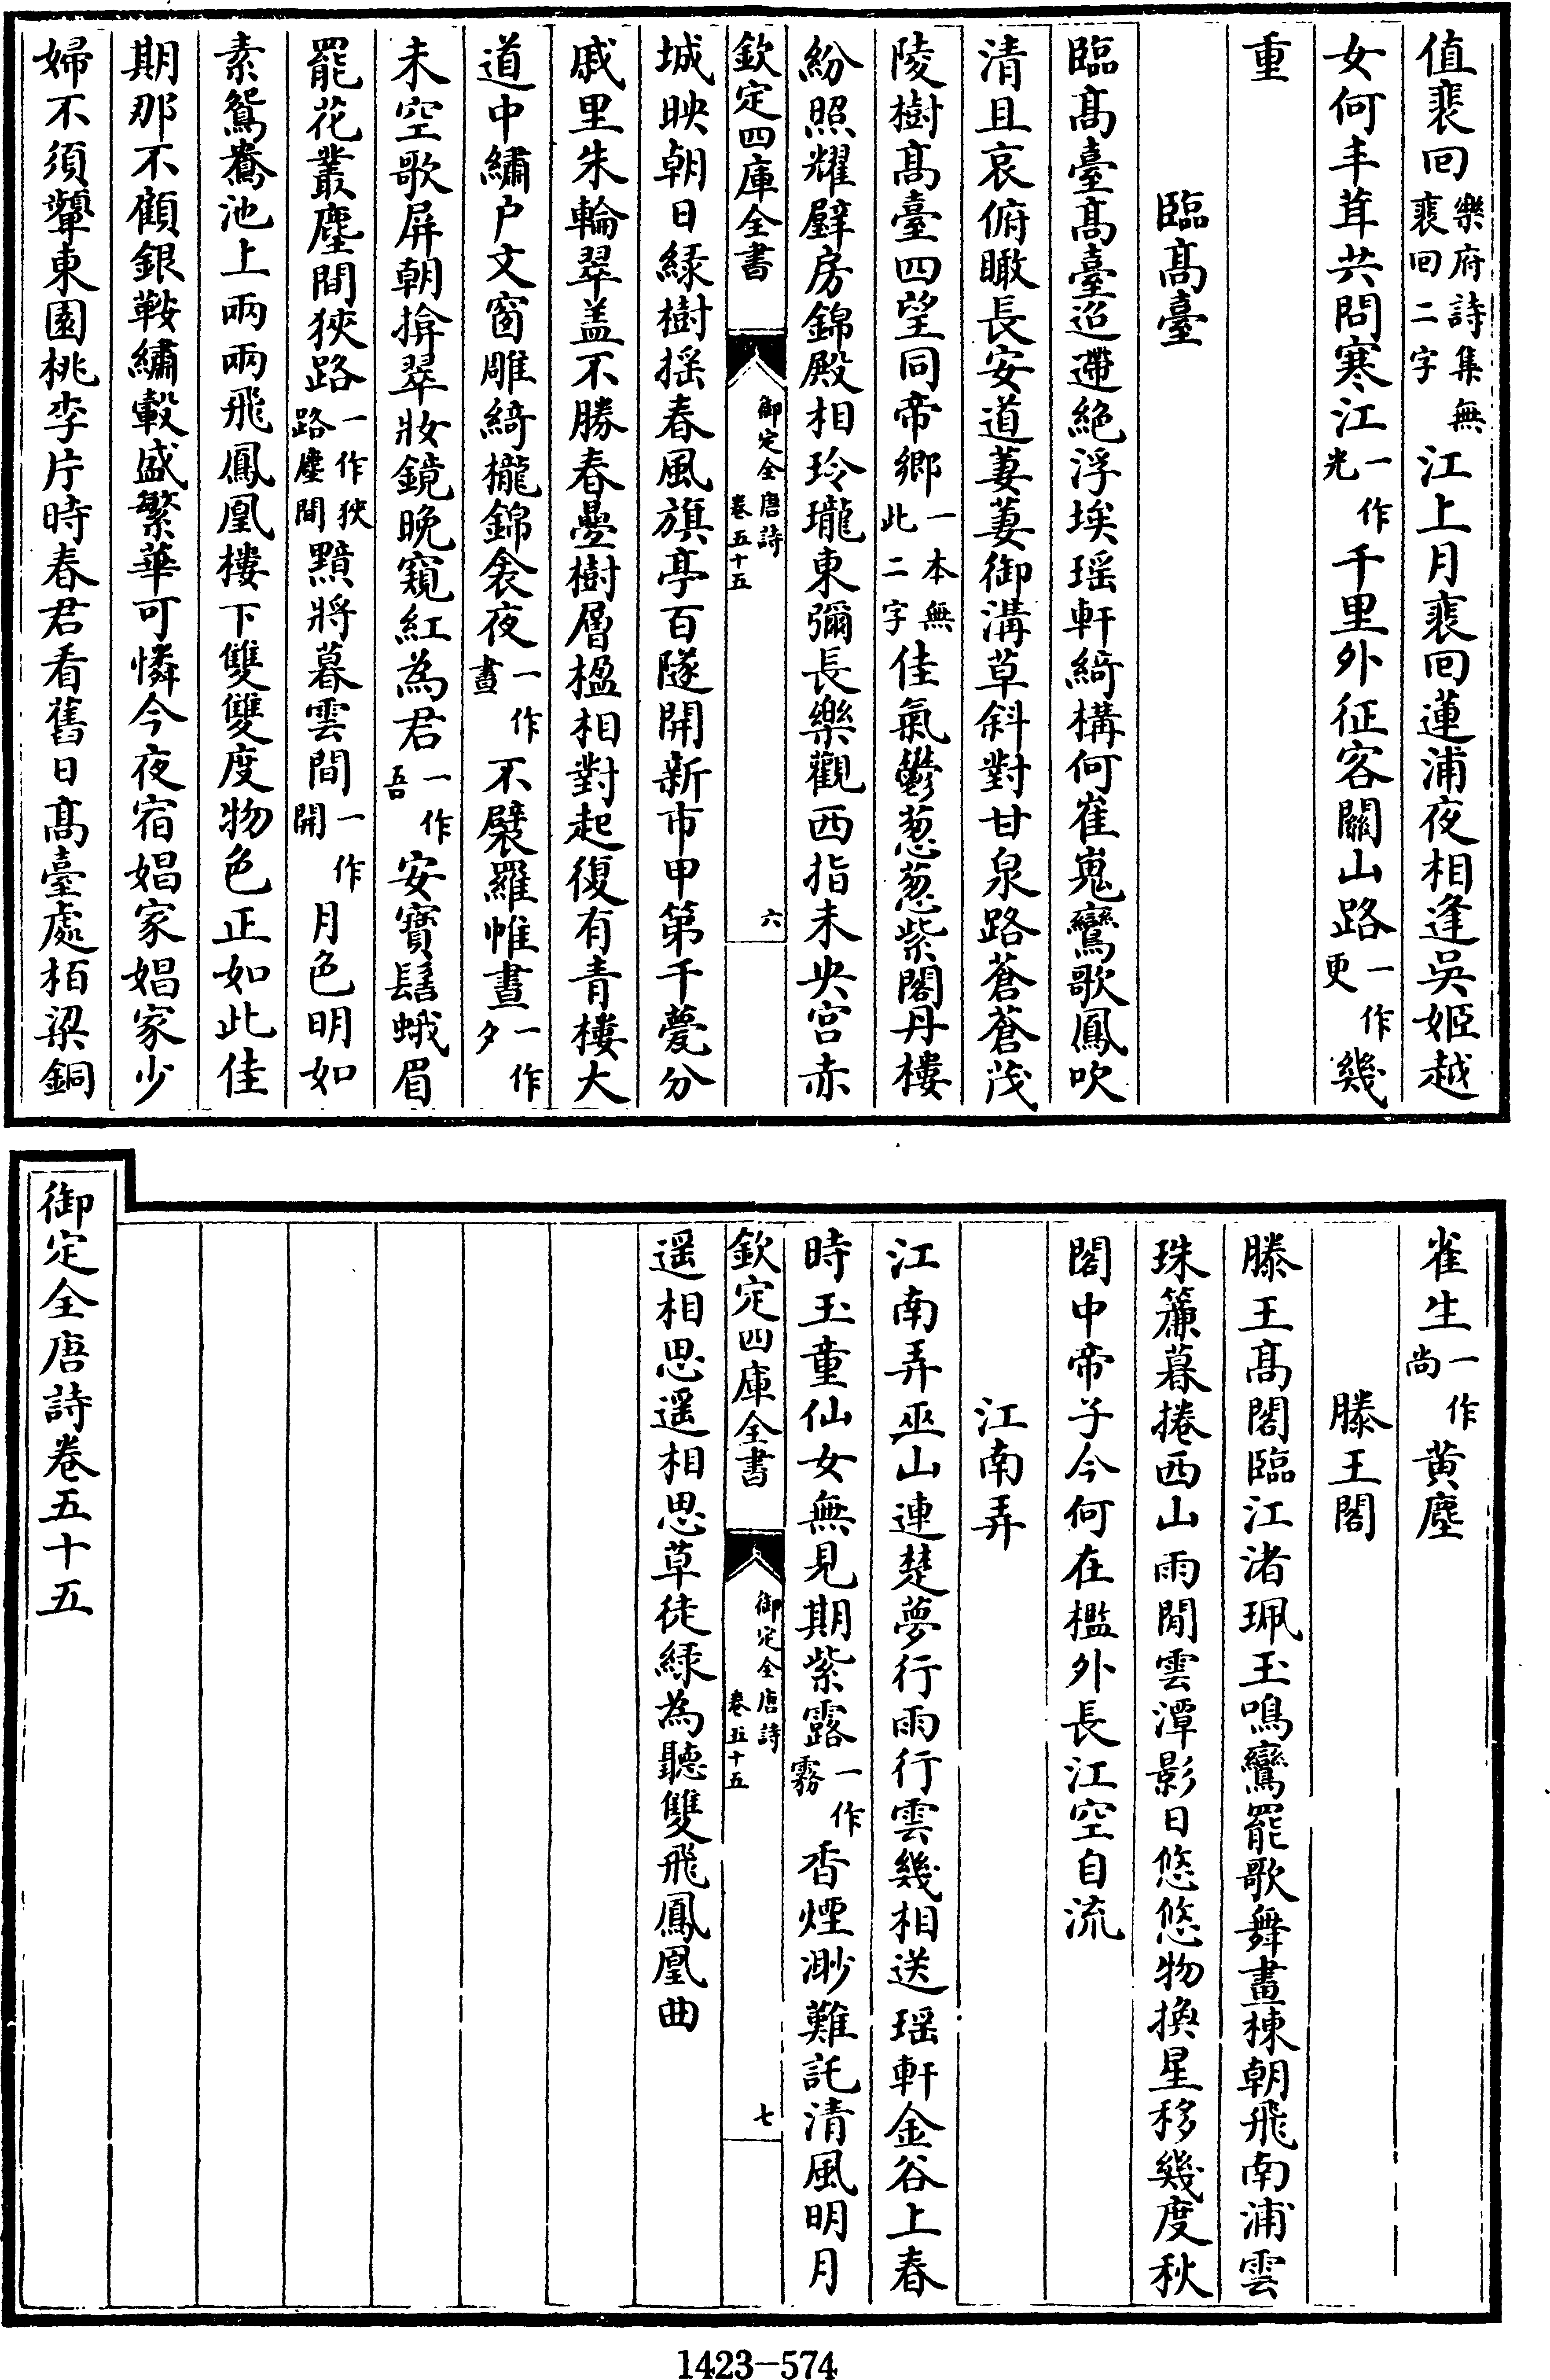 值裴回樂府詩集無裴回二字江上月裴回蓮浦夜相逢吳姬越
女何丰茸共問寒江一作光千里外征客關山路一作更幾
重
臨髙臺
臨髙臺髙臺迢遞絕浮埃瑶軒綺構何崔嵬鸞歌鳳吹
清且哀俯瞰長安道萋萋御溝草斜對甘泉路蒼蒼茂
陵樹髙臺四望同帝鄉一本無此二字佳氣鬱葱葱紫閣丹樓
紛照耀壁房錦殿相玲瓏東彌長樂觀西指未央宫赤
欽定四庫全書
御定全唐詩卷五十五
六
城映朝日緑樹摇春風旗亭百隧開新市甲第千甍分
戚里朱輪翠盖不勝春疊樹層楹相對起復有青樓大
道中繡户文窗雕綺櫳錦衾夜一作晝不襞羅帷晝一作夕
未空歌屏朝掩翠妝鏡晚窺紅為君一作吾安寶髻蛾眉
罷花叢塵間狹路一作狹路塵間黯將暮雲間一作開月色明如
素鴛鴦池上兩兩飛鳳凰樓下雙雙度物色正如此佳
期那不顧銀鞍繡轂盛繁華可憐今夜宿娼家娼家少
婦不須顰東園桃李片時春君看舊日髙臺處栢梁銅
雀生一作尚黄塵
滕王閣
滕王髙閣臨江渚珮玉鳴鸞罷歌舞畫棟朝飛南浦雲
珠簾暮捲西山雨閒雲潭影日悠悠物換星移幾度秋
閣中帝子今何在檻外長江空自流
江南弄
江南弄巫山連楚夢行雨行雲幾相送瑶軒金谷上春
時玉童仙女無見期紫露一作霧香煙渺難託清風明月
欽定四庫全書
御定全唐詩卷五十五
七
遥相思遥相思草徒緑為聽雙飛鳳凰曲
御定全唐詩卷五十五
1423-574